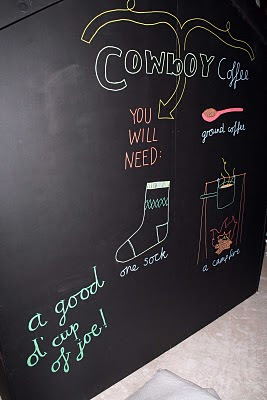 COWBOY Coffee
YOU
WILL
NEED:
ground coffee
one sock
a campfire
a good
ol' cup
of joe!